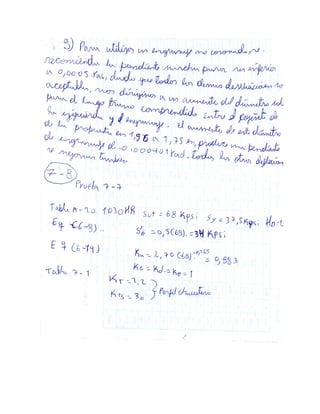 9) Para utilizar un engranaje no coronado, se
recomienda la pendiente no sea inferior
a 0,0005 rad, dado que todas las demas
aceptables, nos dirigimos a un aumente del diametro
para el largo tramo comprendido entre el cojinete de
la izquierda y el engranaje. el aumente de este diametro
de la propuesta en 1,56 a 1,75 in, produce una pendiente
de engranaje de 0.000401 rad. todas las otras
se mejoran tambien.
7-8
Prueba 7-7
Tabla A-20 1030HR Sut = 68 Kpsi Sy = 37,5 Kpsi
Eq (6-8)... S'e = 0,5(68) = 34 KPSi
Eq (6-19) Ka = 2,70 (68)^-0,265 = 0,883
Kc = Kd = Ke = 1
Tabla 7-1 Kt = 2,2
Kts = 3,0 } Perfil